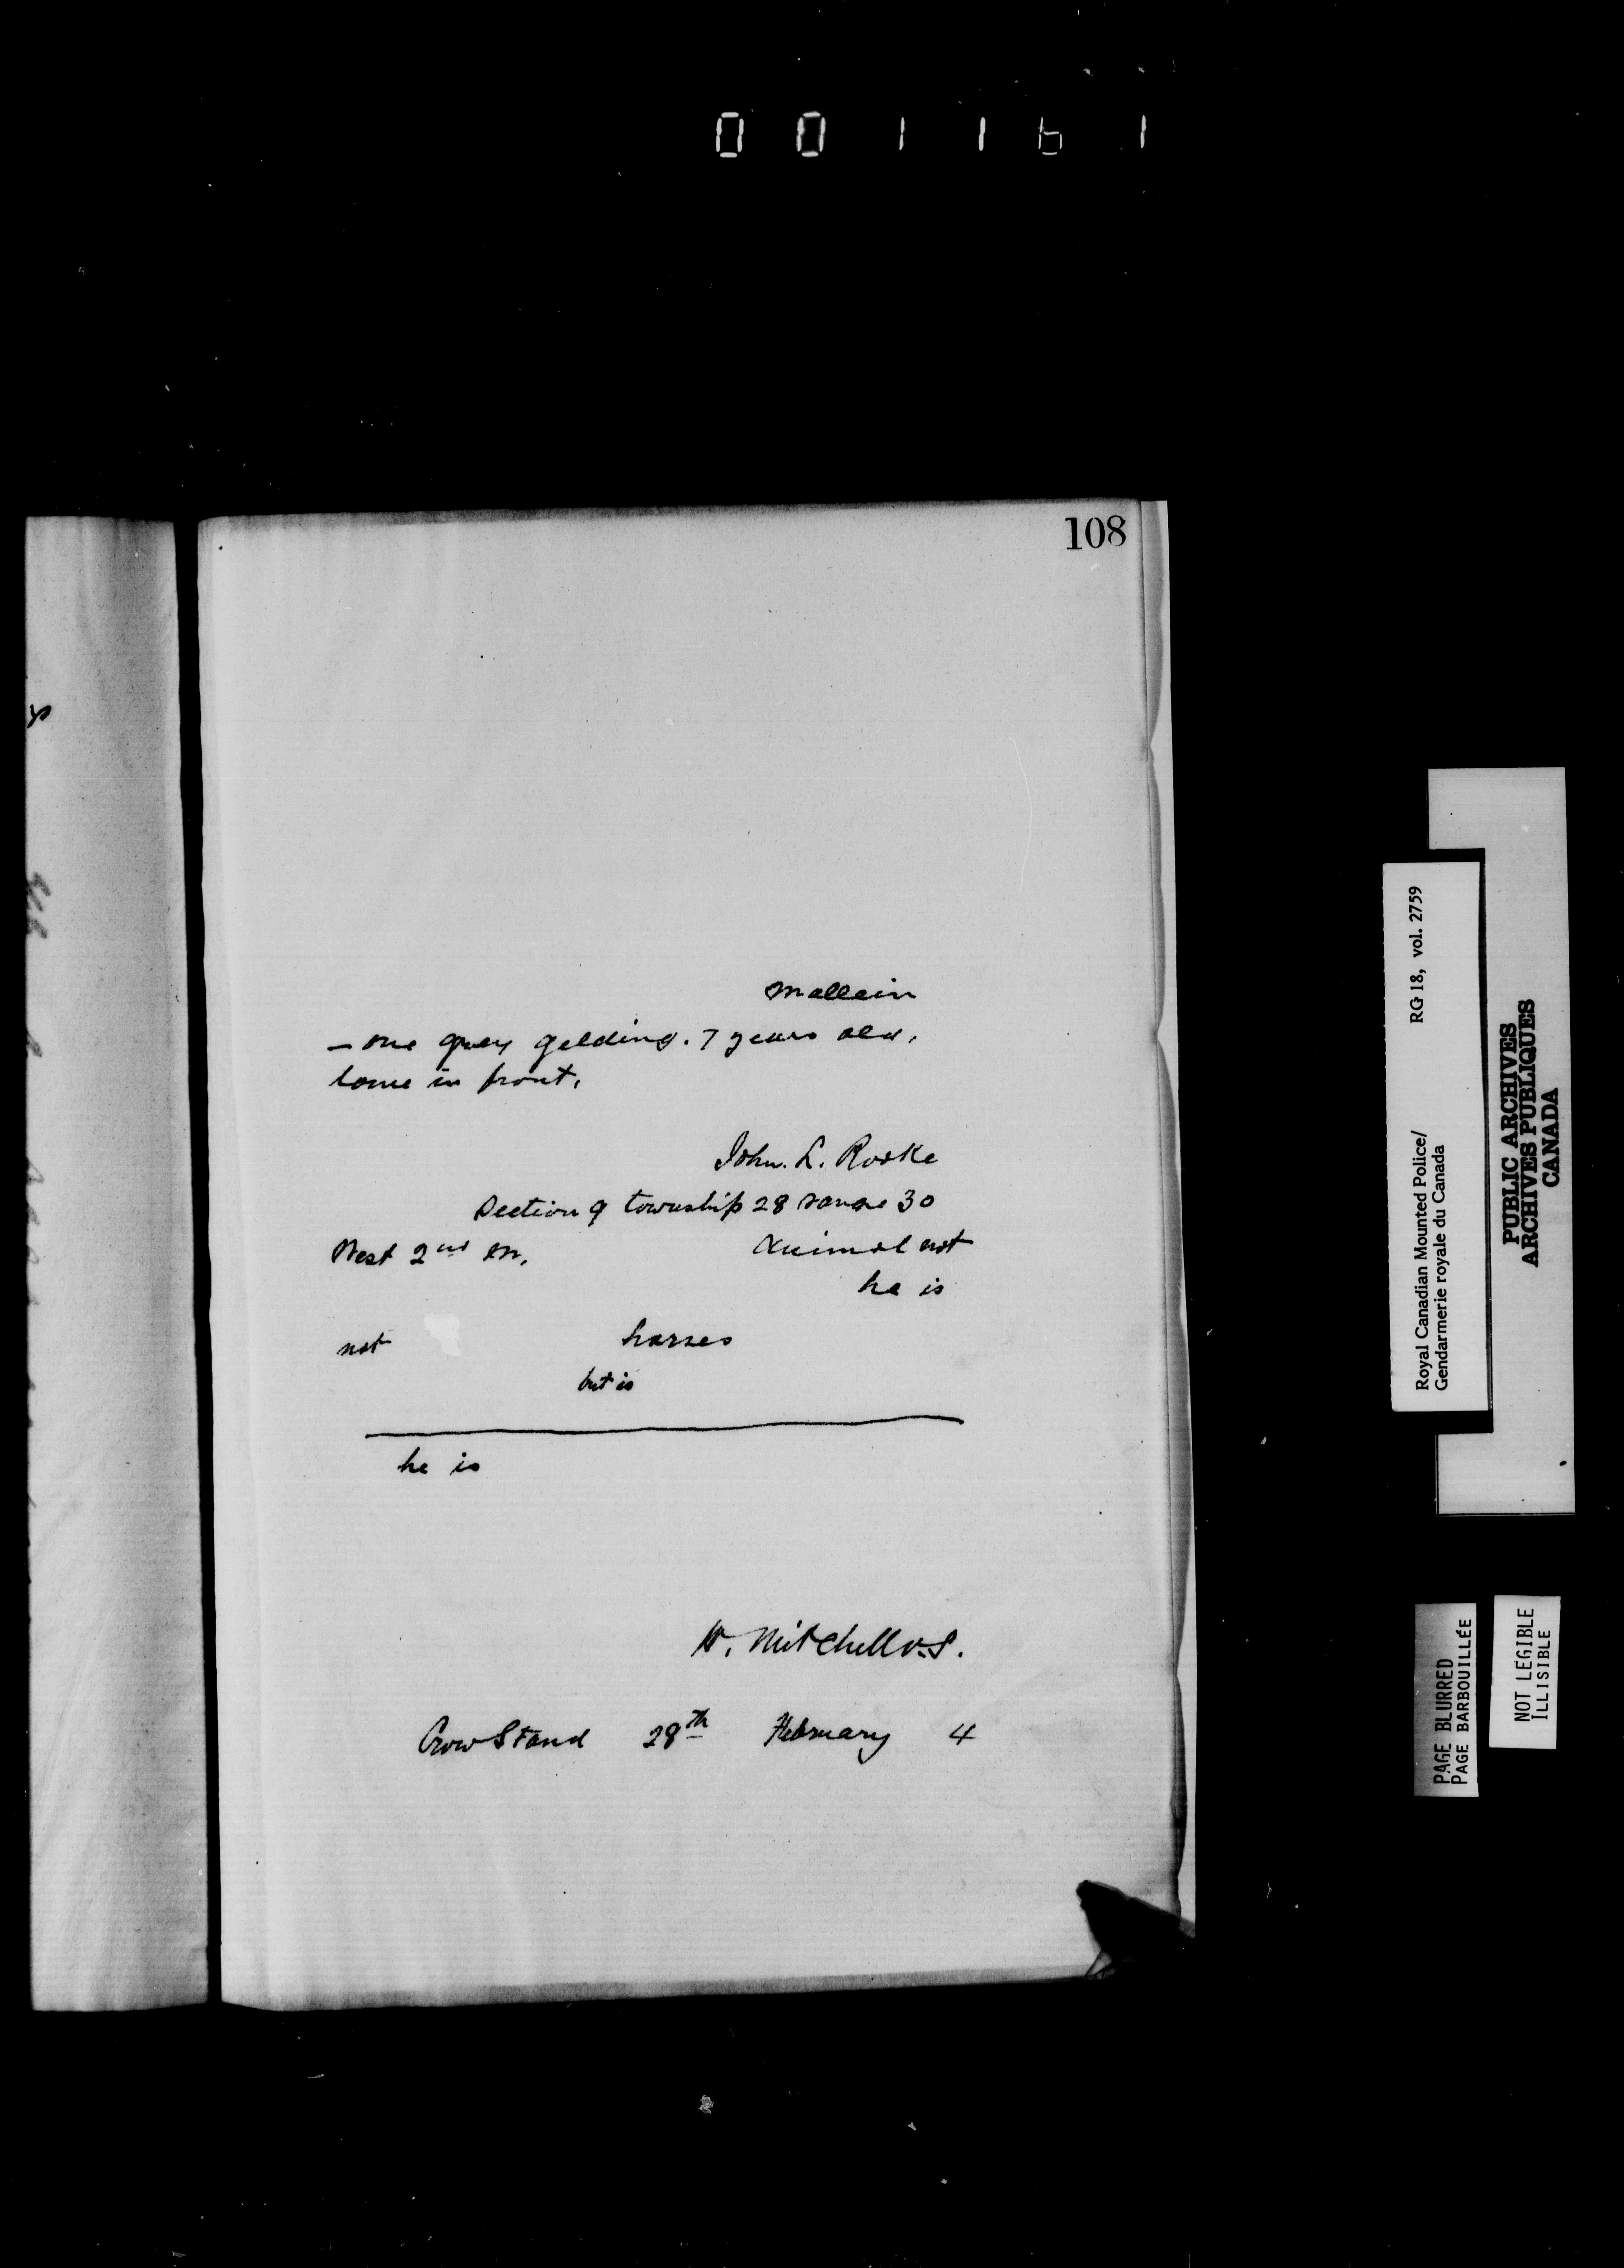 001161
108
mallein
— one grey gelding. 7 years old,
lame in front.
John. L. Rooke
Section 9 township 28 range 30
West 2nd m.
Animal not
he is
not
horses
but is
he is
W. Mitchell V.S.
Crow Stand 28th February 4
Royal Canadian Mounted Police/ RG 18, vol. 2759
Gendarmerie royale du Canada
PUBLIC ARCHIVES
ARCHIVES PUBLIQUES
CANADA
PAGE BLURRED
PAGE BARBOUILLÉE
NOT LEGIBLE
ILLISIBLE